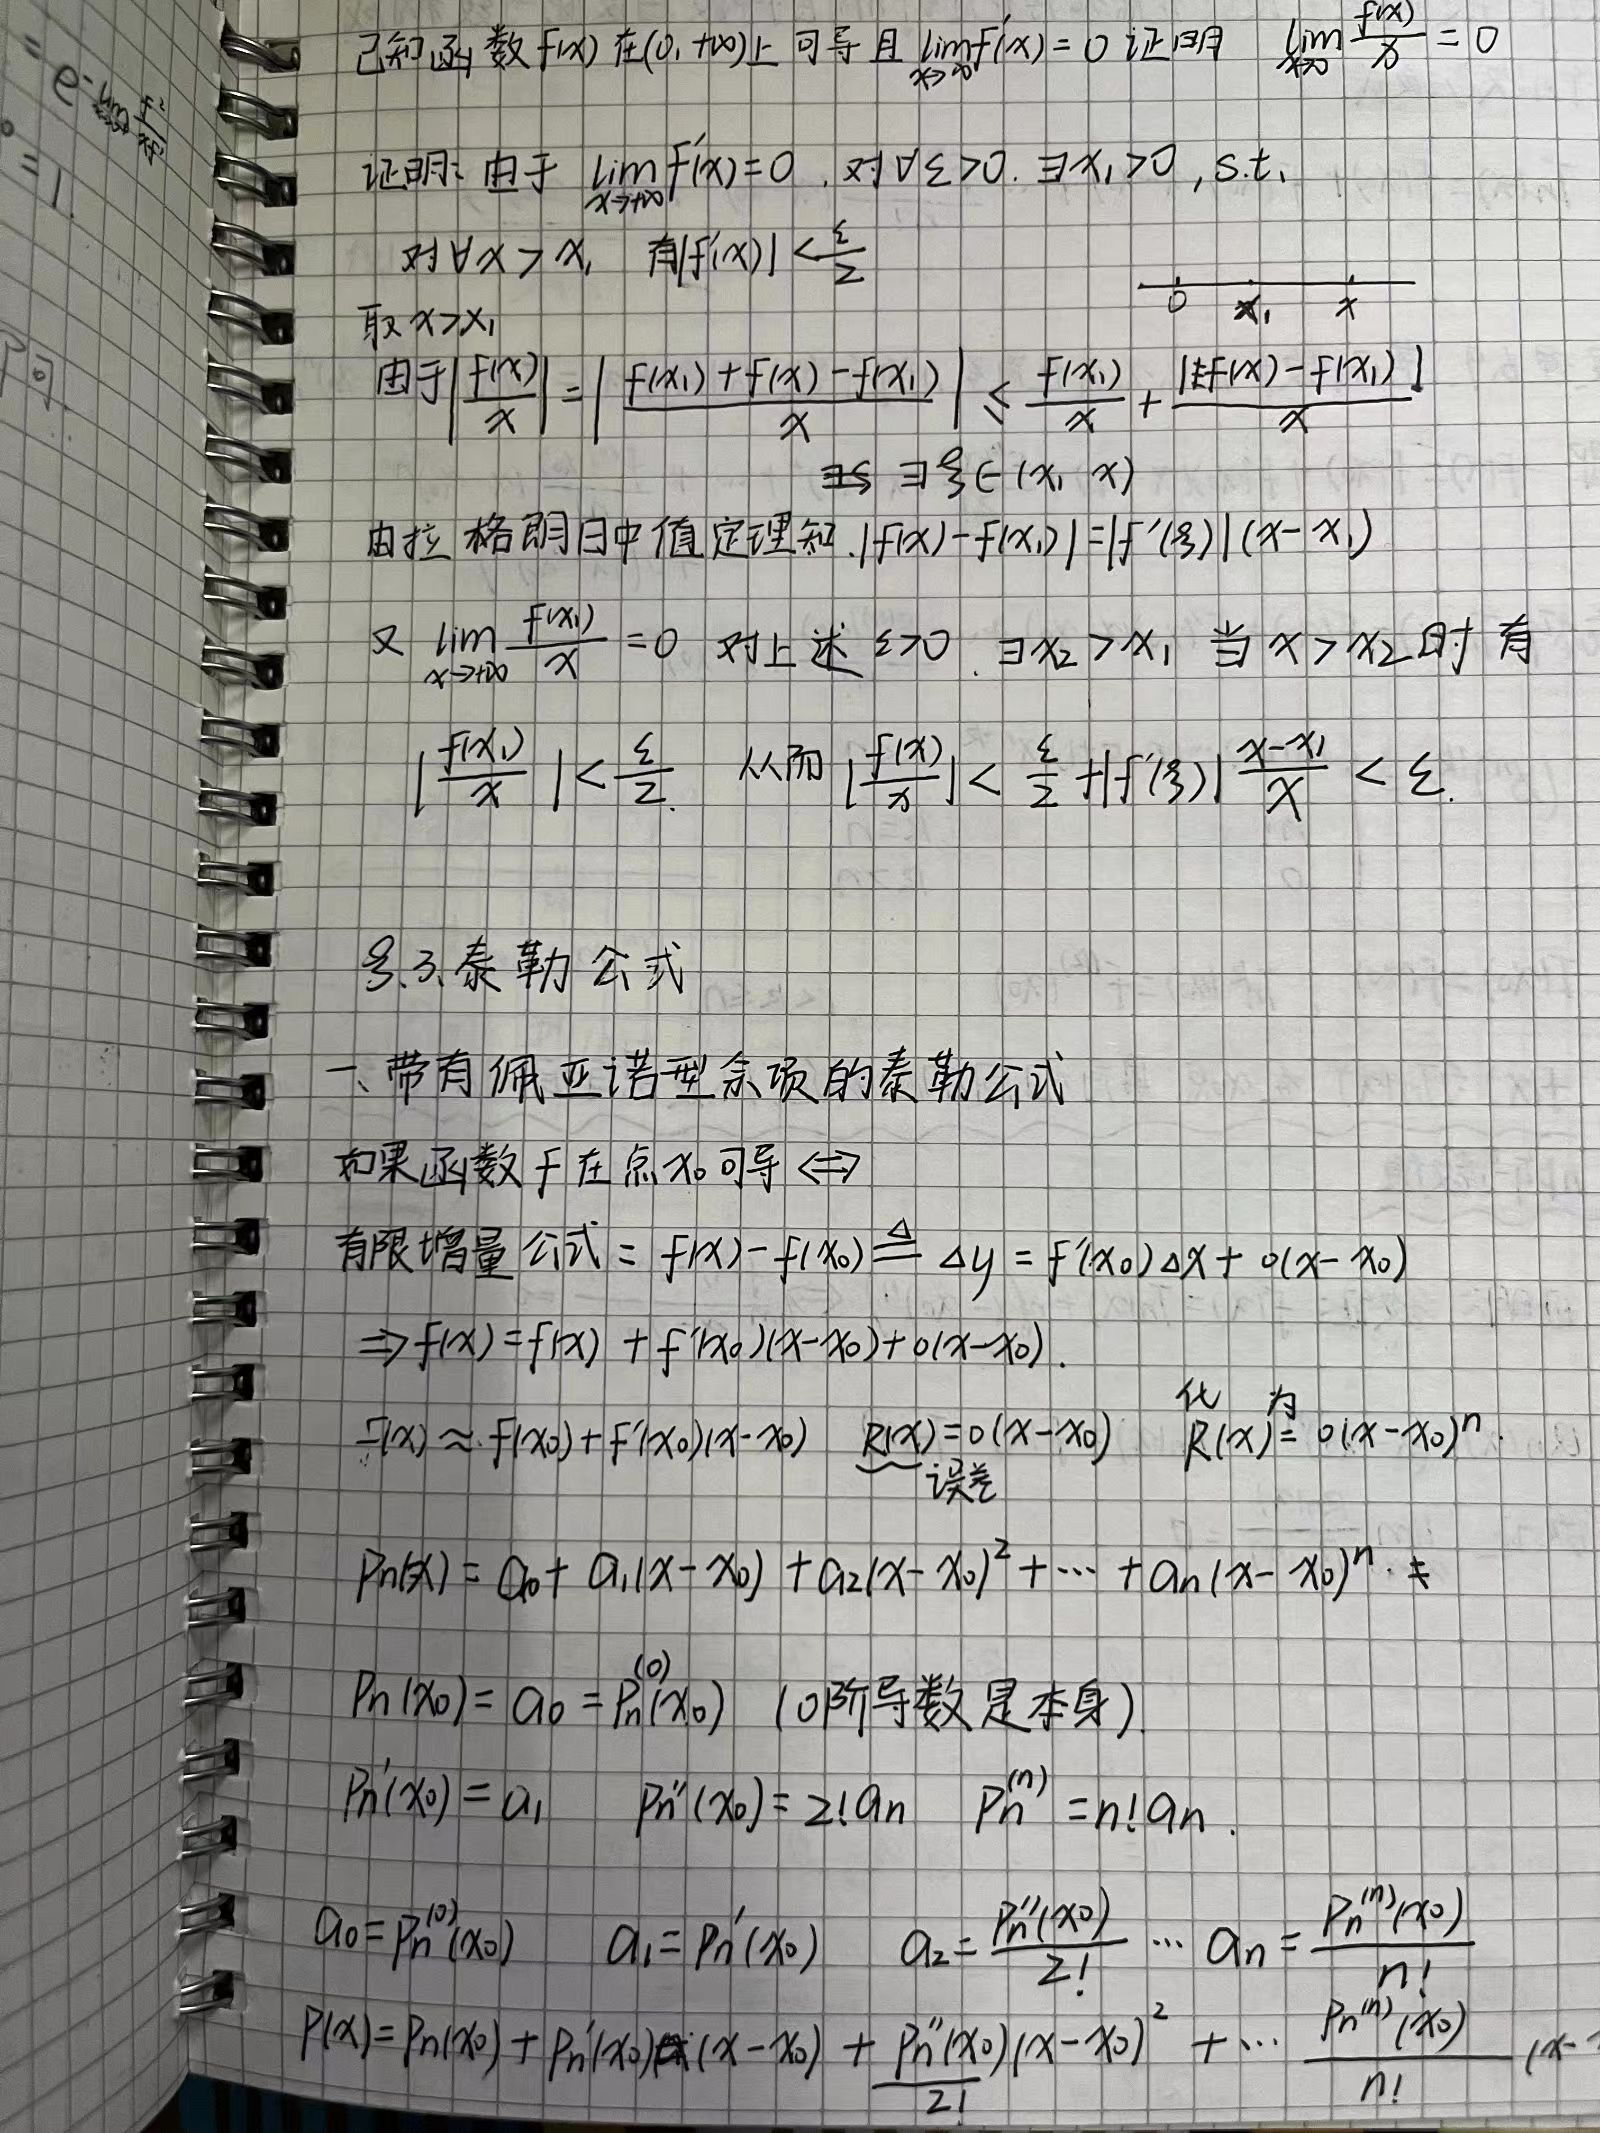 = e^{-lim f²/xf'}
= 1.
已知函数f(x)在(0,+∞)上可导且 lim_{x→∞} f'(x)=0 证明 lim_{x→∞} f(x)/x = 0
证明: 由于 lim_{x→+∞} f'(x)=0, 对∀ε>0. ∃x₁>0, s.t.
对∀x>x₁ 有|f'(x)|<ε/2
0 x₁ x
取x>x₁
由于|f(x)/x|=|(f(x₁)+f(x)-f(x₁))/x| ≤ f(x₁)/x + |f(x)-f(x₁)|/x
∃ξ∈(x₁ x)
由拉格朗日中值定理知.|f(x)-f(x₁)|=|f'(ξ)|(x-x₁)
又 lim_{x→+∞} f(x₁)/x =0 对上述ε>0. ∃x₂>x₁ 当x>x₂时有
|f(x₁)/x|<ε/2. 从而|f(x)/x|<ε/2+|f'(ξ)| (x-x₁)/x <ε.
§.3、泰勒公式
一、带有佩亚诺型余项的泰勒公式
如果函数f在点x₀可导⇔
有限增量公式= f(x)-f(x₀) ≜ Δy=f'(x₀)Δx+o(x-x₀)
⇒f(x)=f(x)+f'(x₀)(x-x₀)+o(x-x₀).
化 为
f(x)≈f(x₀)+f'(x₀)(x-x₀) R(x)=o(x-x₀) R(x)=o(x-x₀)ⁿ.
误差
Pn(x)=a₀+a₁(x-x₀)+a₂(x-x₀)²+⋯+an(x-x₀)ⁿ.
Pn(x₀)=a₀=Pn^{(0)}(x₀) (0阶导数是本身).
Pn'(x₀)=a₁ Pn''(x₀)=2!an Pn^{(n)}=n!an.
a₀=Pn^{(0)}(x₀) a₁=Pn'(x₀) a₂=Pn''(x₀)/2! ⋯ an=Pn^{(n)}(x₀)/n!
P(x)=Pn(x₀)+Pn'(x₀)(x-x₀)+Pn''(x₀)/2!(x-x₀)²+⋯ Pn^{(n)}(x₀)/n! (x-